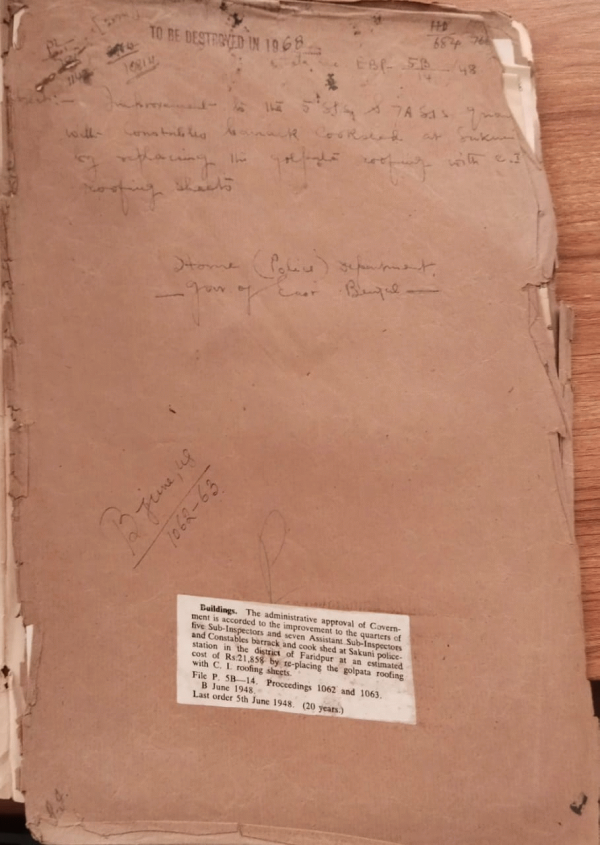 TO BE DESTROYED IN 1968
EBP 5B/14 48
Improvement to the 5 S.I's & 7 A.S.I's
with constables barrack cookshed at Sakuni
by replacing the golpata roofing with C.I
roofing sheets
Home (Police) Department
Gov of East Bengal
B June, 48
1062-63
Buildings. The administrative approval of Govern-
ment is accorded to the improvement to the quarters of
five Sub-Inspectors and seven Assistant Sub-Inspectors
and Constables barrack and cook shed at Sakuni police-
station in the district of Faridpur at an estimated
cost of Rs.21,858 by re-placing the golpata roofing
with C. I. roofing sheets.
File P. 5B—14. Proceedings 1062 and 1063.
B June 1948.
Last order 5th June 1948. (20 years.)